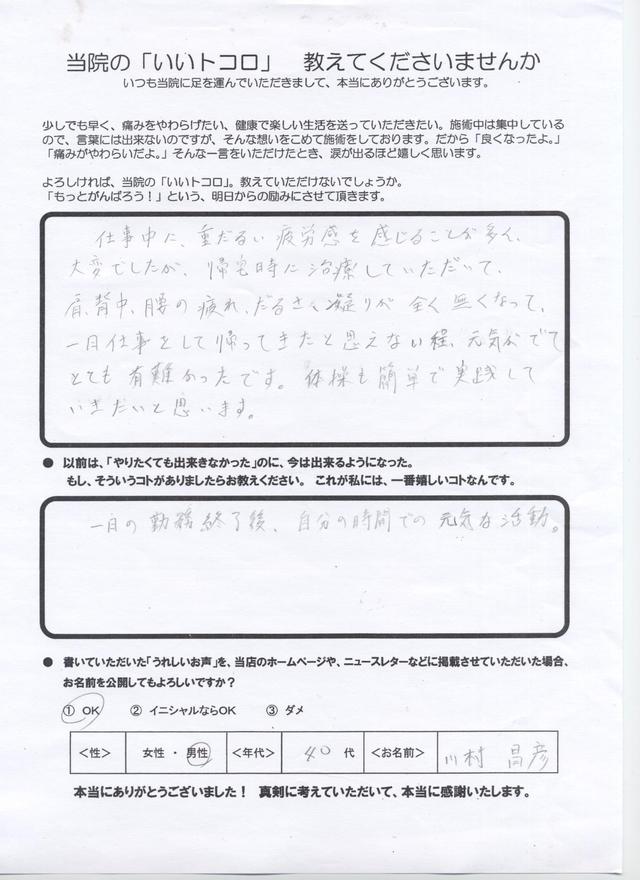 当院の「いいトコロ」　教えてくださいませんか
いつも当院に足を運んでいただきまして、本当にありがとうございます。
少しでも早く、痛みをやわらげたい、健康で楽しい生活を送っていただきたい。施術中は集中している
ので、言葉には出来ないのですが、そんな想いをこめて施術をしております。だから「良くなったよ。」
「痛みがやわらいだよ。」そんな一言をいただけたとき、涙が出るほど嬉しく思います。
よろしければ、当院の「いいトコロ」。教えていただけないでしょうか。
「もっとがんばろう！」という、明日からの励みにさせて頂きます。
仕事中に、重だるい疲労感を感じることが多く、
大変でしたが、帰宅時に治療していただいて、
肩、背中、腰の疲れ、だるさ、凝りが全く無くなって、
一日仕事をして帰ってきたと思えない程、元気がでて
とても有難かったです。体操も簡単で実践して
いきたいと思います。
● 以前は、「やりたくても出来きなかった」のに、今は出来るようになった。
もし、そういうコトがありましたらお教えください。これが私には、一番嬉しいコトなんです。
一日の勤務終了後、自分の時間での元気な活動。
● 書いていただいた「うれしいお声」を、当店のホームページや、ニュースレターなどに掲載させていただいた場合、
お名前を公開してもよろしいですか？
① OK　② イニシャルならOK　③ ダメ
＜性＞　女性 ・ 男性　＜年代＞　40 代　＜お名前＞　川村 昌彦
本当にありがとうございました！　真剣に考えていただいて、本当に感謝いたします。